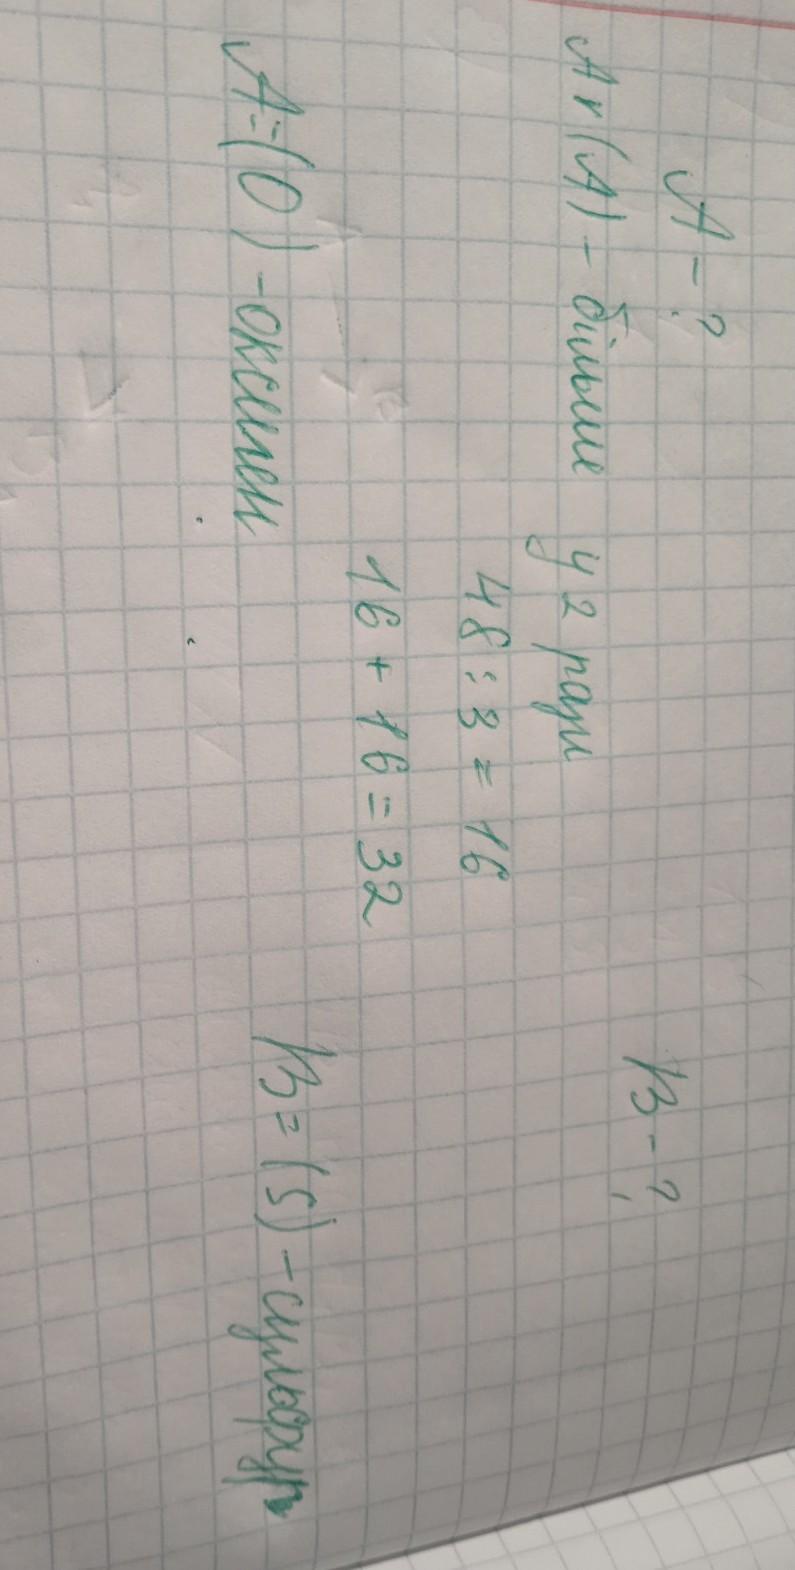 А - ? В - ?
Ar(A) - більше у 2 рази
48 : 3 = 16
16 + 16 = 32
А = (О) - оксиген В = (S) - сульфур